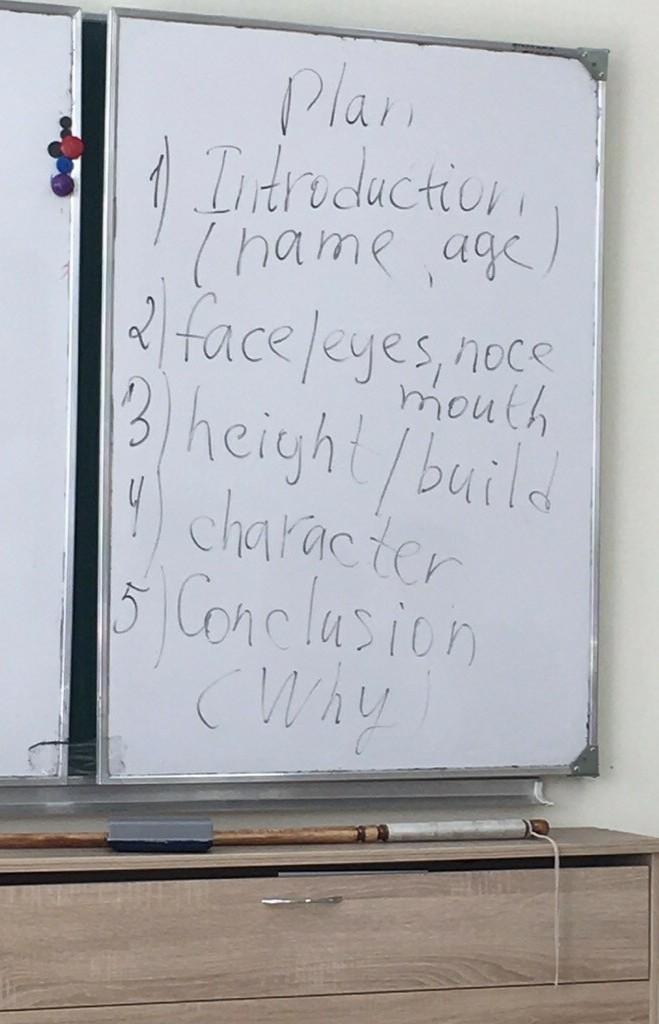 Plan
1) Introduction
(name, age)
2) face/eyes, noce
mouth
3) height/build
4) character
5) Conclusion
(Why)